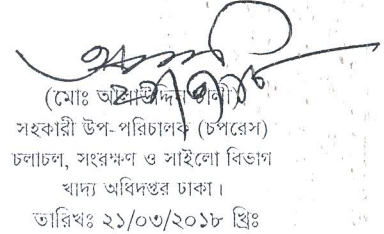 (মোঃ আলাউদ্দিন আলী)
সহকারী উপ-পরিচালক (চপরেস)
চলাচল, সংরক্ষণ ও সাইলো বিভাগ
খাদ্য অধিদপ্তর ঢাকা।
তারিখঃ ২১/০৩/২০১৮ খ্রিঃ